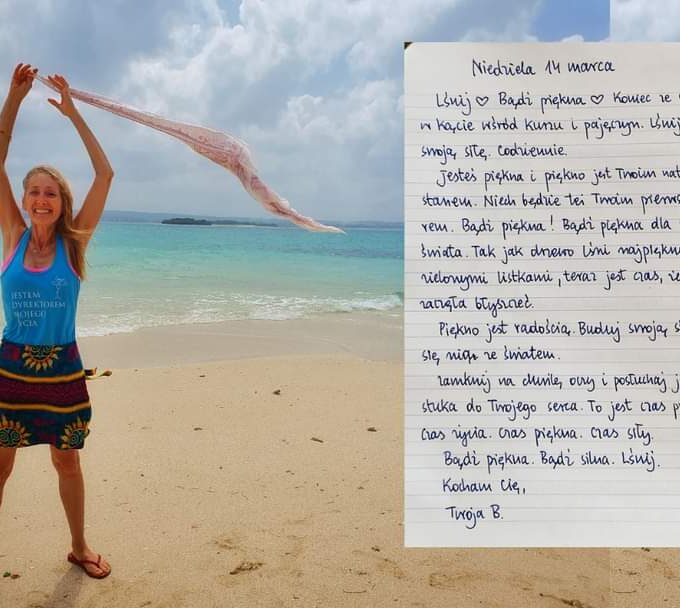 JESTEM
DYREKTOREM
MOJEGO
ŻYCIA
Niedziela 14 marca
Lśnij ♡ Bądź piękna ♡ Koniec ze
w kącie wśród kurzu i pajęczyn. Lśnij
swoją siłę. Codziennie.
Jesteś piękna i piękno jest Twoim
stanem. Niech będzie też Twoim
rem. Bądź piękna! Bądź piękna dla
świata. Tak jak drzewo lśni
zielonymi listkami, teraz jest czas,
zaczęła błyszczeć.
Piękno jest radością. Buduj swoją
się nią ze światem.
Zamknij na chwilę oczy i posłuchaj
stuka do Twojego serca. To jest czas
czas życia. Czas piękna. Czas siły.
Bądź piękna. Bądź silna. Lśnij.
Kocham Cię,
Twoja B.